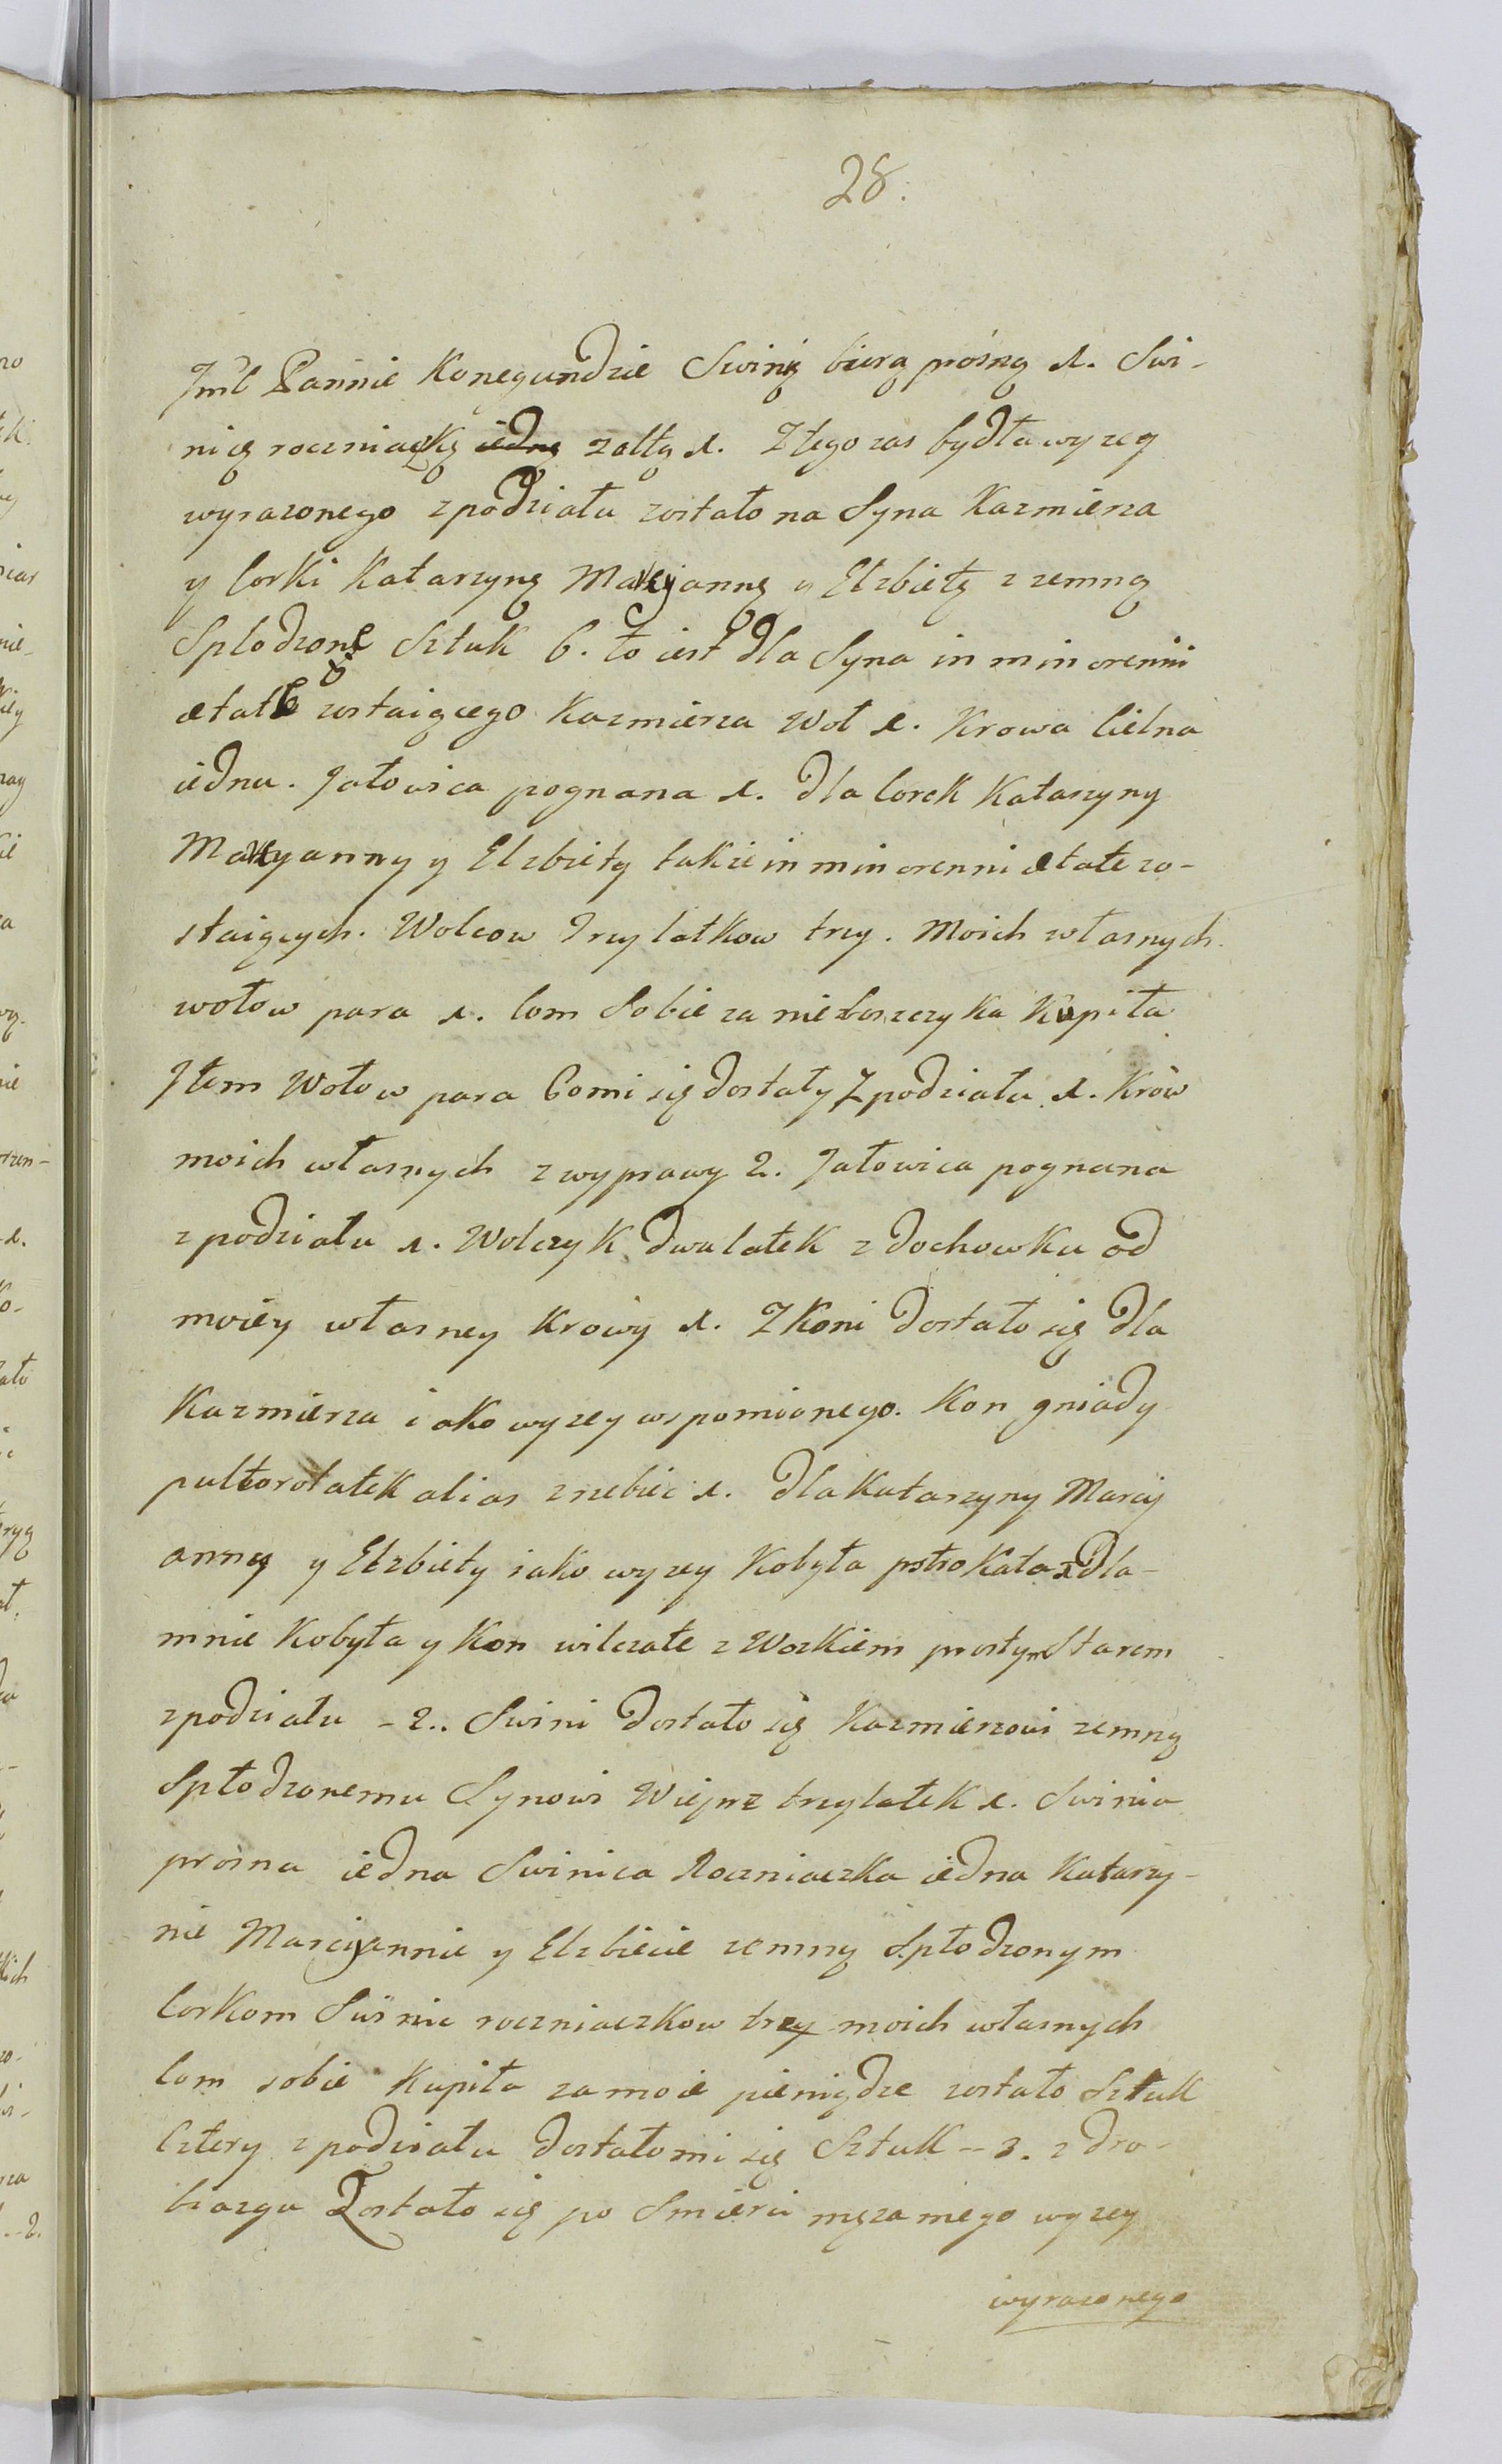 28.
Jmć Pannie Konegundzie Swinię biorą prosną 1. Swi-
nicę roczniaczkę iedną zołtą 1. Z tego zas bydła wyzey
wyrazonego z podziału zostało na Syna Kazmierza
y Corki Katarzynę Maryannę y Elzbietę zemną
Splodzone Sztuk 6. to iest dla Syna in minorenni
ætate zostaiącego Kazmierza Woł 1. Krowa Cielna
iedna. Jałowica pognana 1. dla Corek Katarzyny
Maryanny y Elzbiety takze in minorenni ætate zo-
staiących. Wolcow Trzylatkow trzy. Moich własnych
wołow para 1. Com Sobie za nieboszczyka Kupiła
Jtem Wołow para Co mi się dostały Z podziału 1. Krów
moich własnych z wyprawy 2. Jałowica pognana
z podziału 1. Wolczyk dwulatek z dochowku od
moiey własney Krowy 1. Z Koni dostało się dla
Kazmierza iako wyzey wspomionego. Kon gniady
pułtorolatek alias zrebiec 1. dla Katarzyny Maryi
anny y Elzbiety iako wyzey Kobyła pstrokata 1 Dla
mnie Kobyła y Kon wilczate z Wozkiem prostym Starem
z podziału - 2.. Swini dostało się Kazmierzowi zemną
Spłodzonemu Synowi Wieprz trzylatek 1. Swinia
prosna iedna Swinica Roczniaczka iedna Katarzy-
nie Maryiannie y Elzbiecie zemną Spłodzonym
Corkom Swinie roczniaczkow trzy moich własnych
Com sobie Kupiła za moie pieniądze zostało Sztuk
Cztery z podziału dostało mi się Sztuk -- 3. z dro-
biazgu Zostało się po Smierci męza mego wyzey
wyrazonego